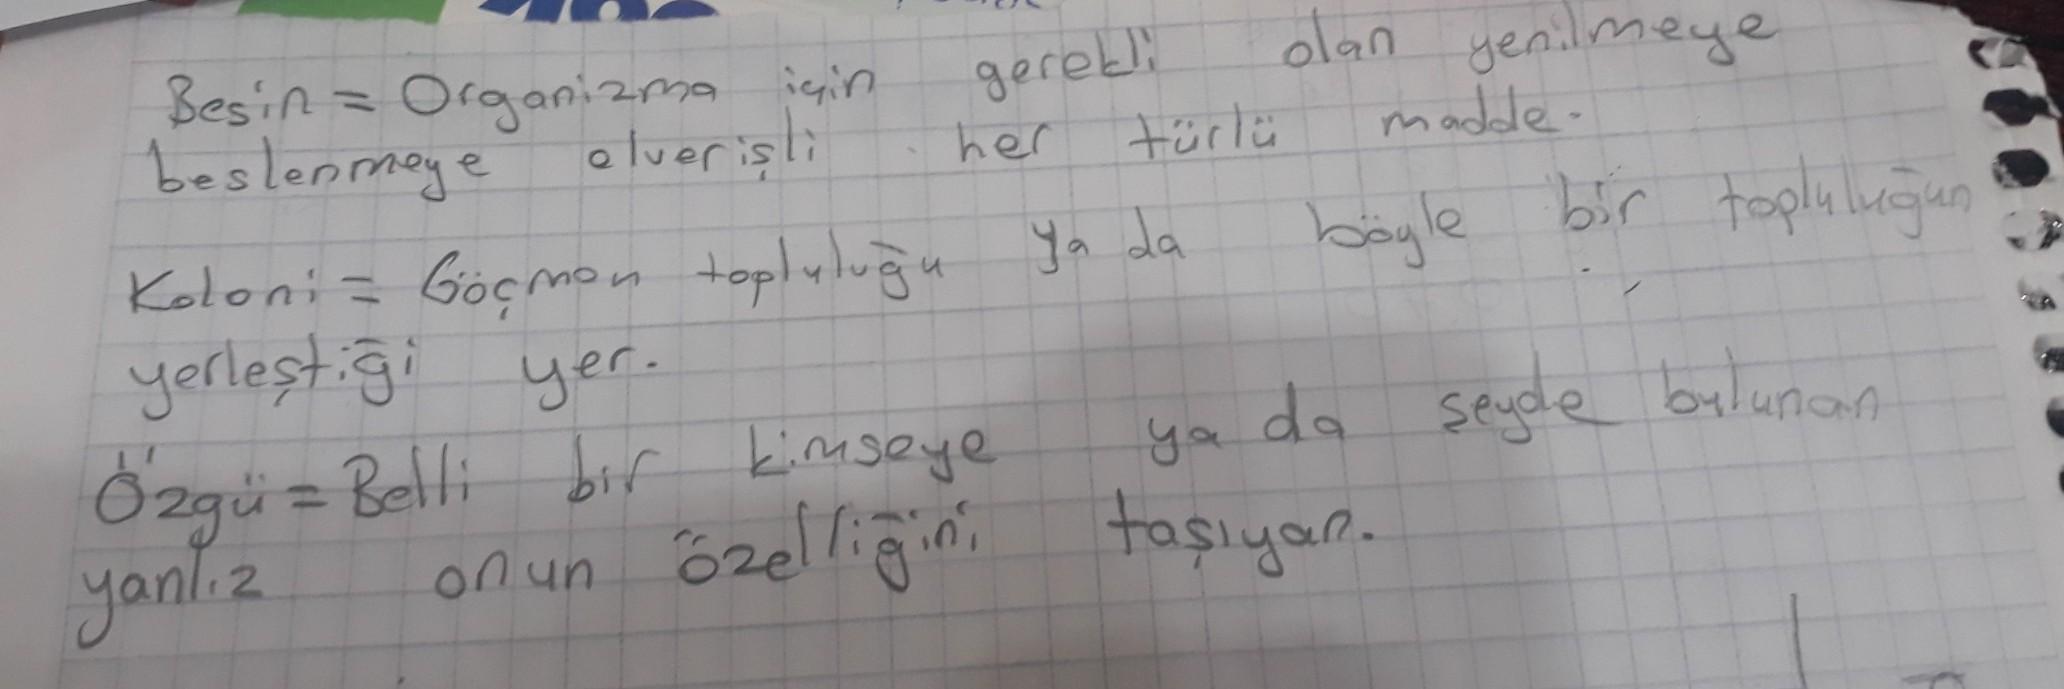 Besin = Organizma için gerekli olan yenilmeye
beslenmeye elverişli her türlü madde.
Koloni = Göçmen topluluğu ya da böyle bir topluluğun
yerleştiği yer.
Özgü = Belli bir kimseye ya da seyde bulunan
yanlız onun özelliğini taşıyan.